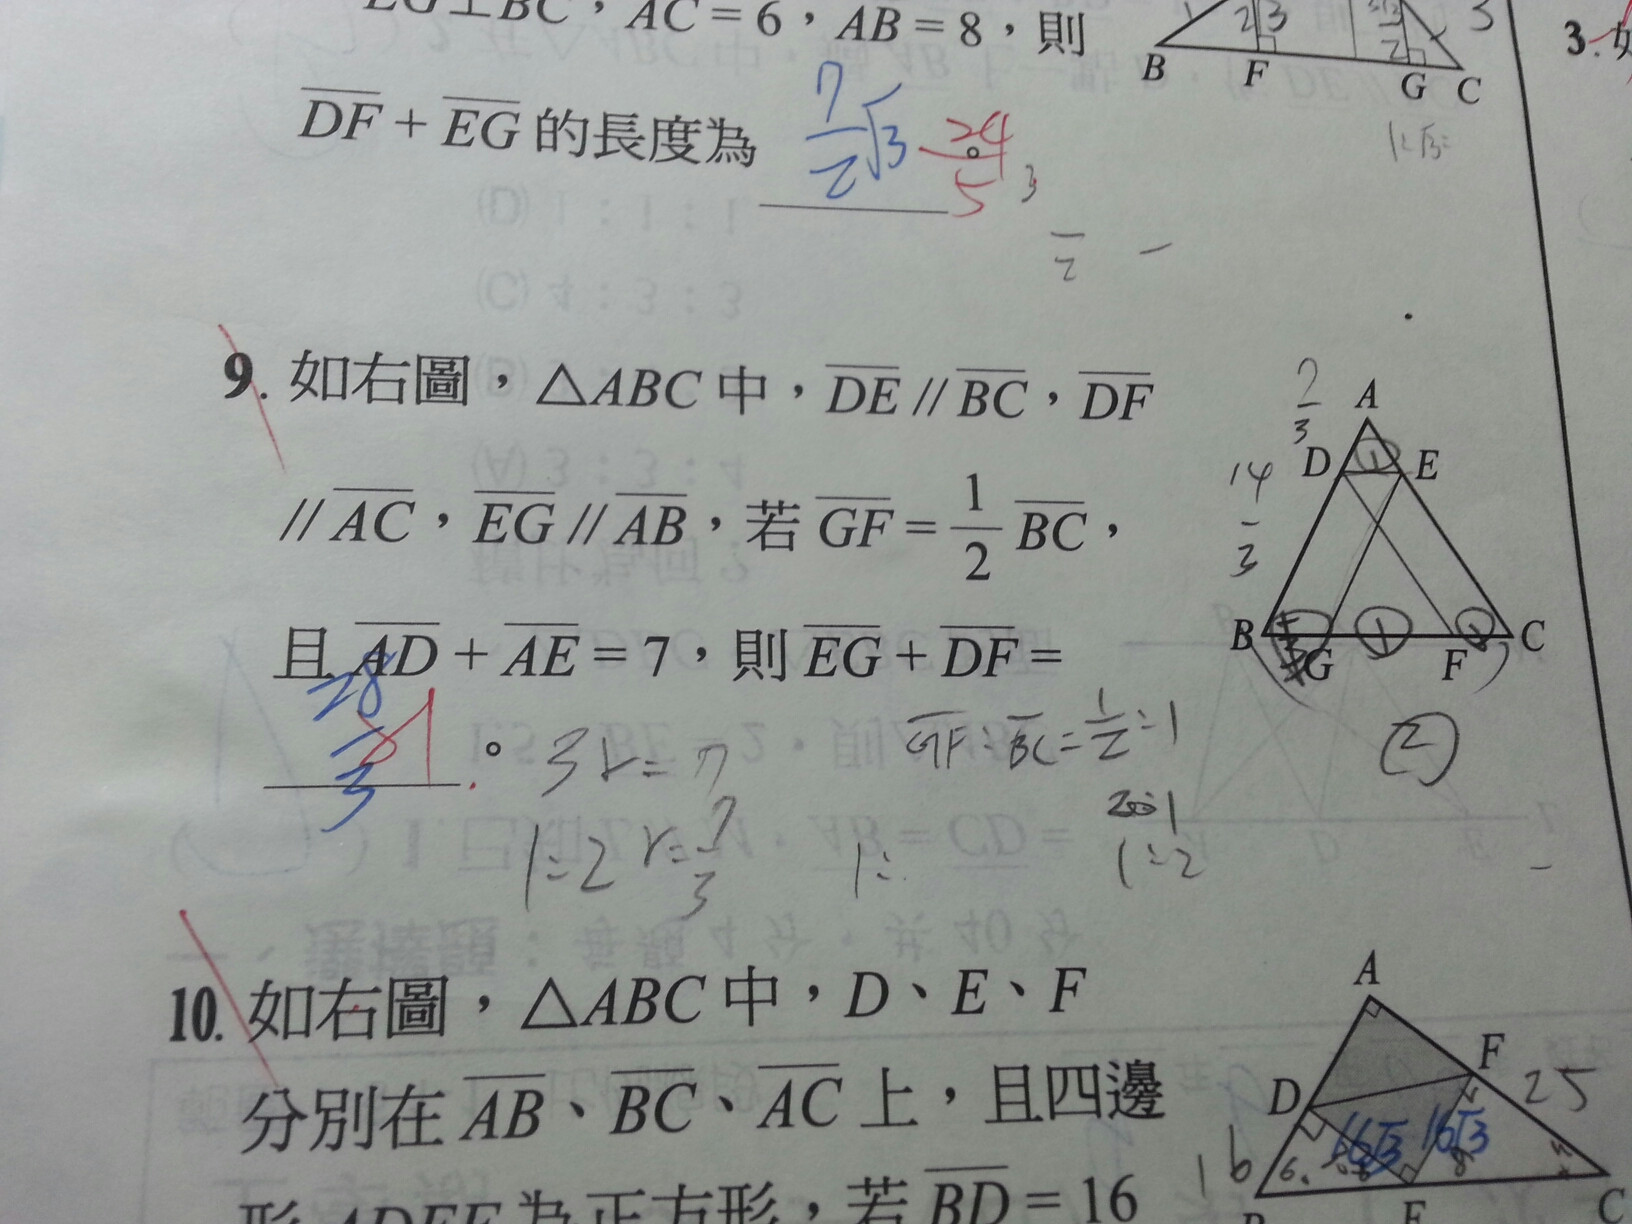 EG⊥BC，AC = 6，AB = 8，則
DF + EG 的長度為 7/2√3 24/5 。
B F G C
3. 如
9. 如右圖，△ABC 中，DE // BC，DF
// AC，EG // AB，若 GF = 1/2 BC，
且 AD + AE = 7，則 EG + DF =
28/3 21 。
3r = 7
r = 7/3
1:2
GF : BC = 1/2 : 1
1:2
1:
2/3
14/3
A
D 1 E
B G 1 F C
2
10. 如右圖，△ABC 中，D、E、F
分別在 AB、BC、AC 上，且四邊
形 ADEF 為正方形，若 BD = 16
A
F
D
25
16√3 16√3
16
B E C